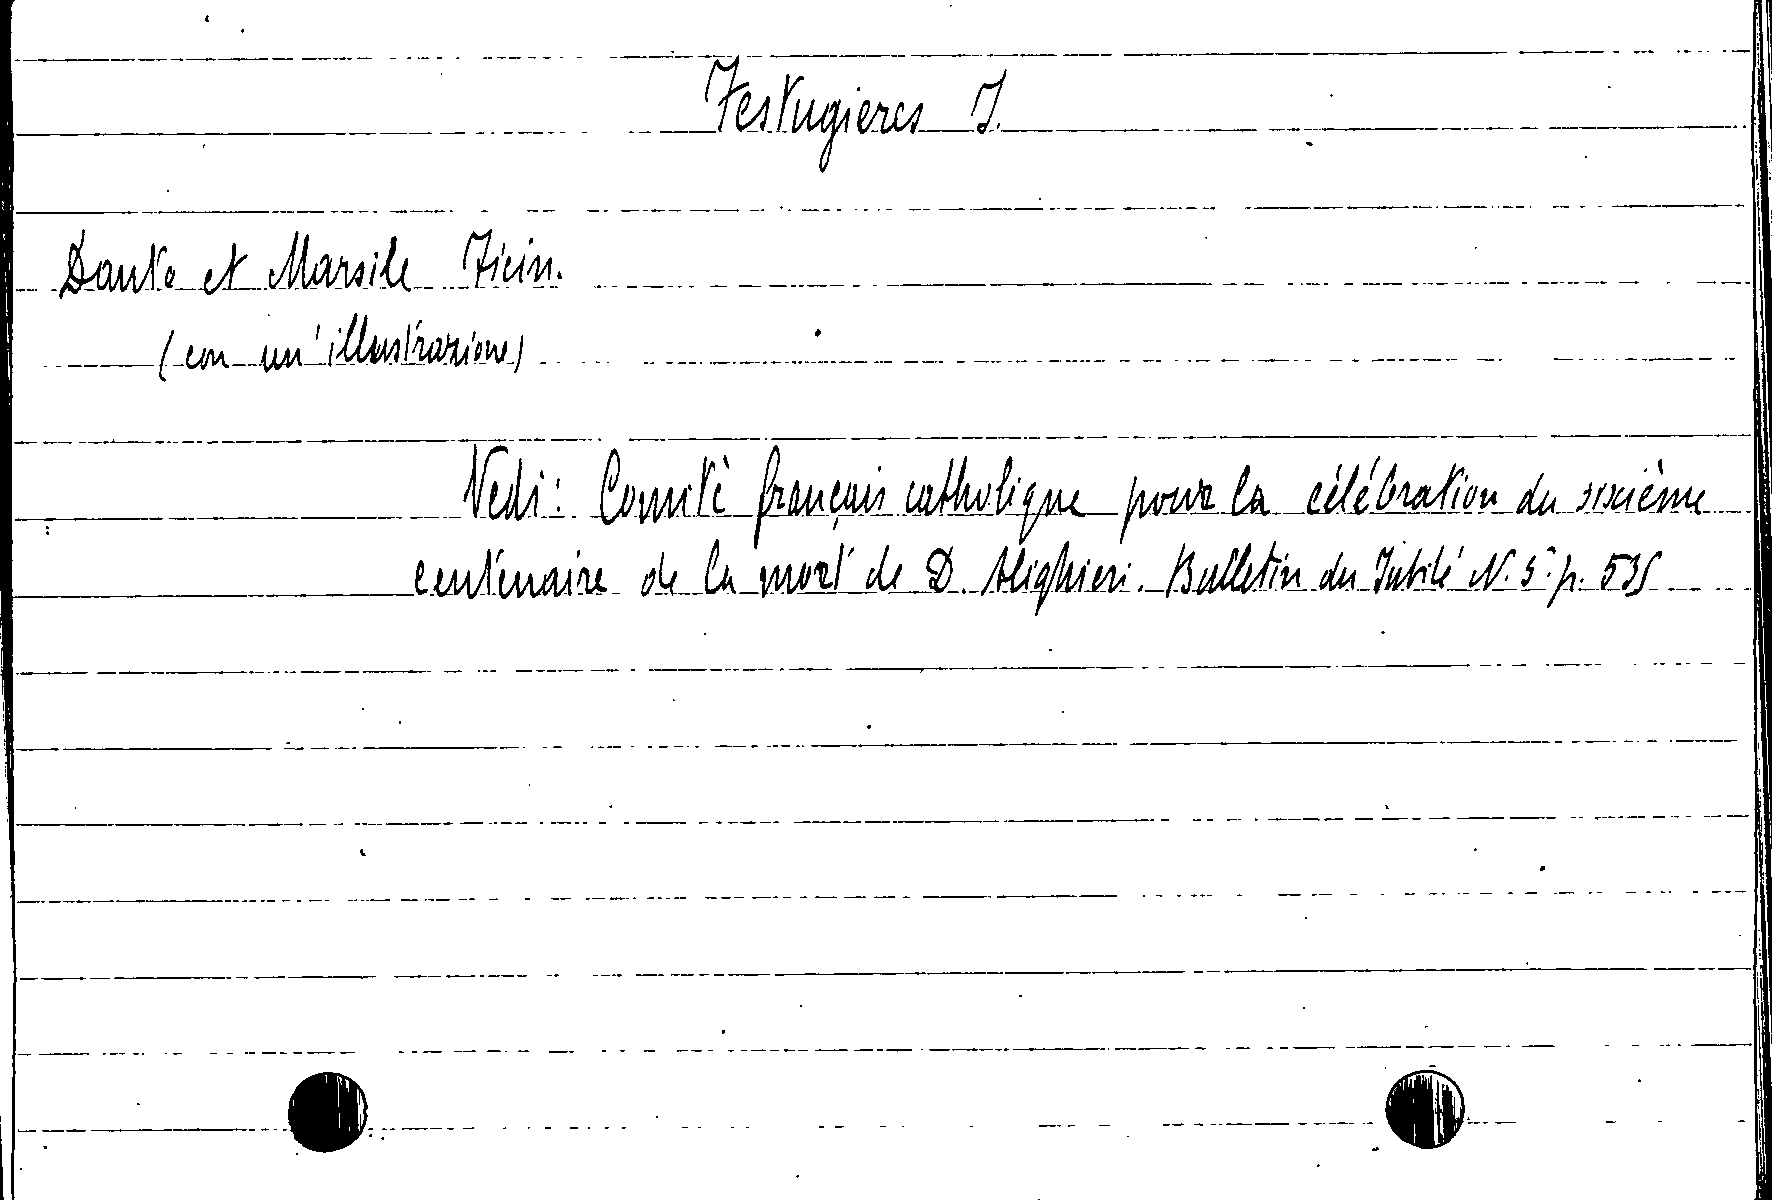 Festugieres J.
Dante et Marsile Ficin.
(con un'illustrazione)
Vedi: Comitè français catholique pour la célébration du sixième
centenaire de la mort de D. Alighieri. Bulletin du Jubilé N. 5. p. 535